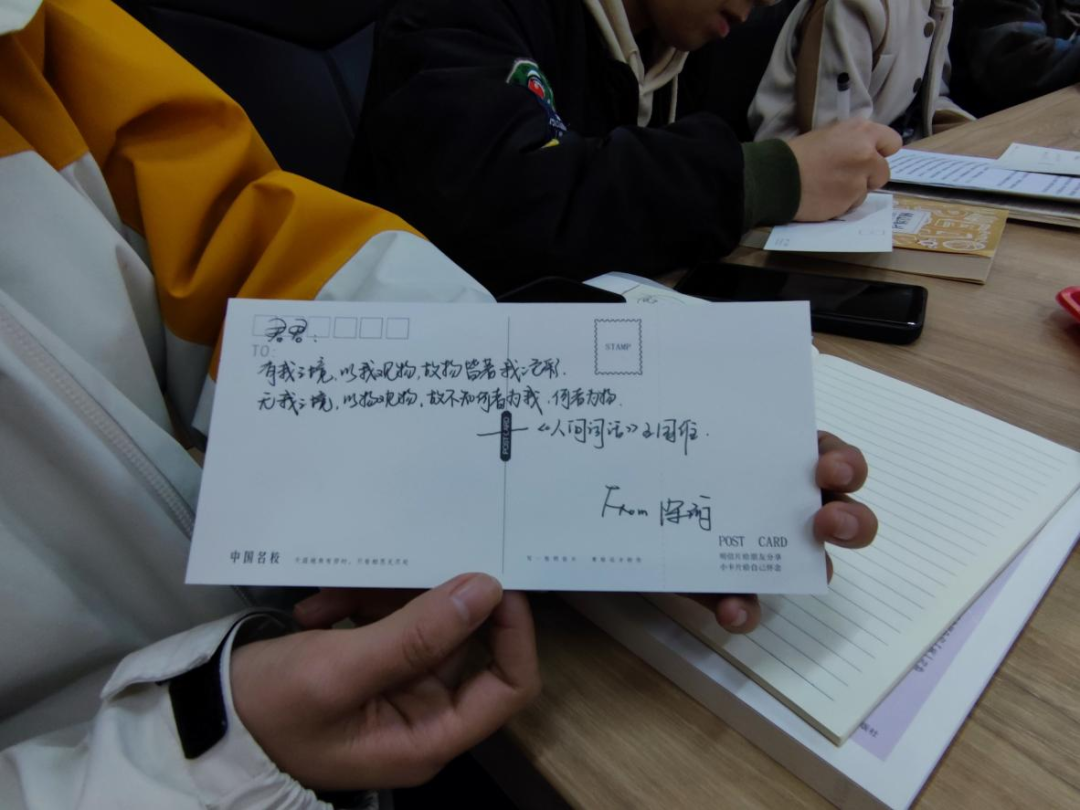 君君：
TO:
STAMP
有我之境，以我观物，故物皆着我之色彩.
无我之境，以物观物，故不知何者为我，何者为物.
——《人间词话》王国维.
POSTCARD
From
POST CARD
明信片给朋友分享
小卡片给自己怀念
中国名校